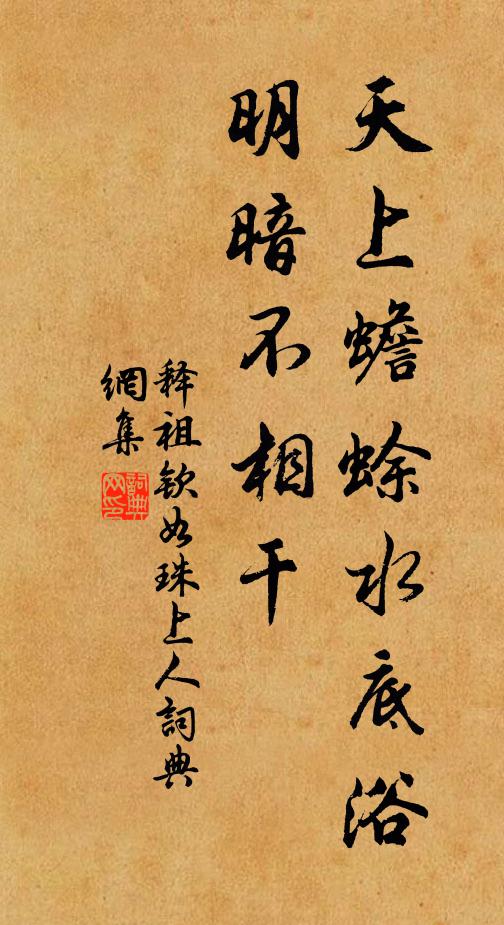 天上蟾蜍水底浴
明暗不相干
释祖钦如珠上人詞典
網集
詞典
网印